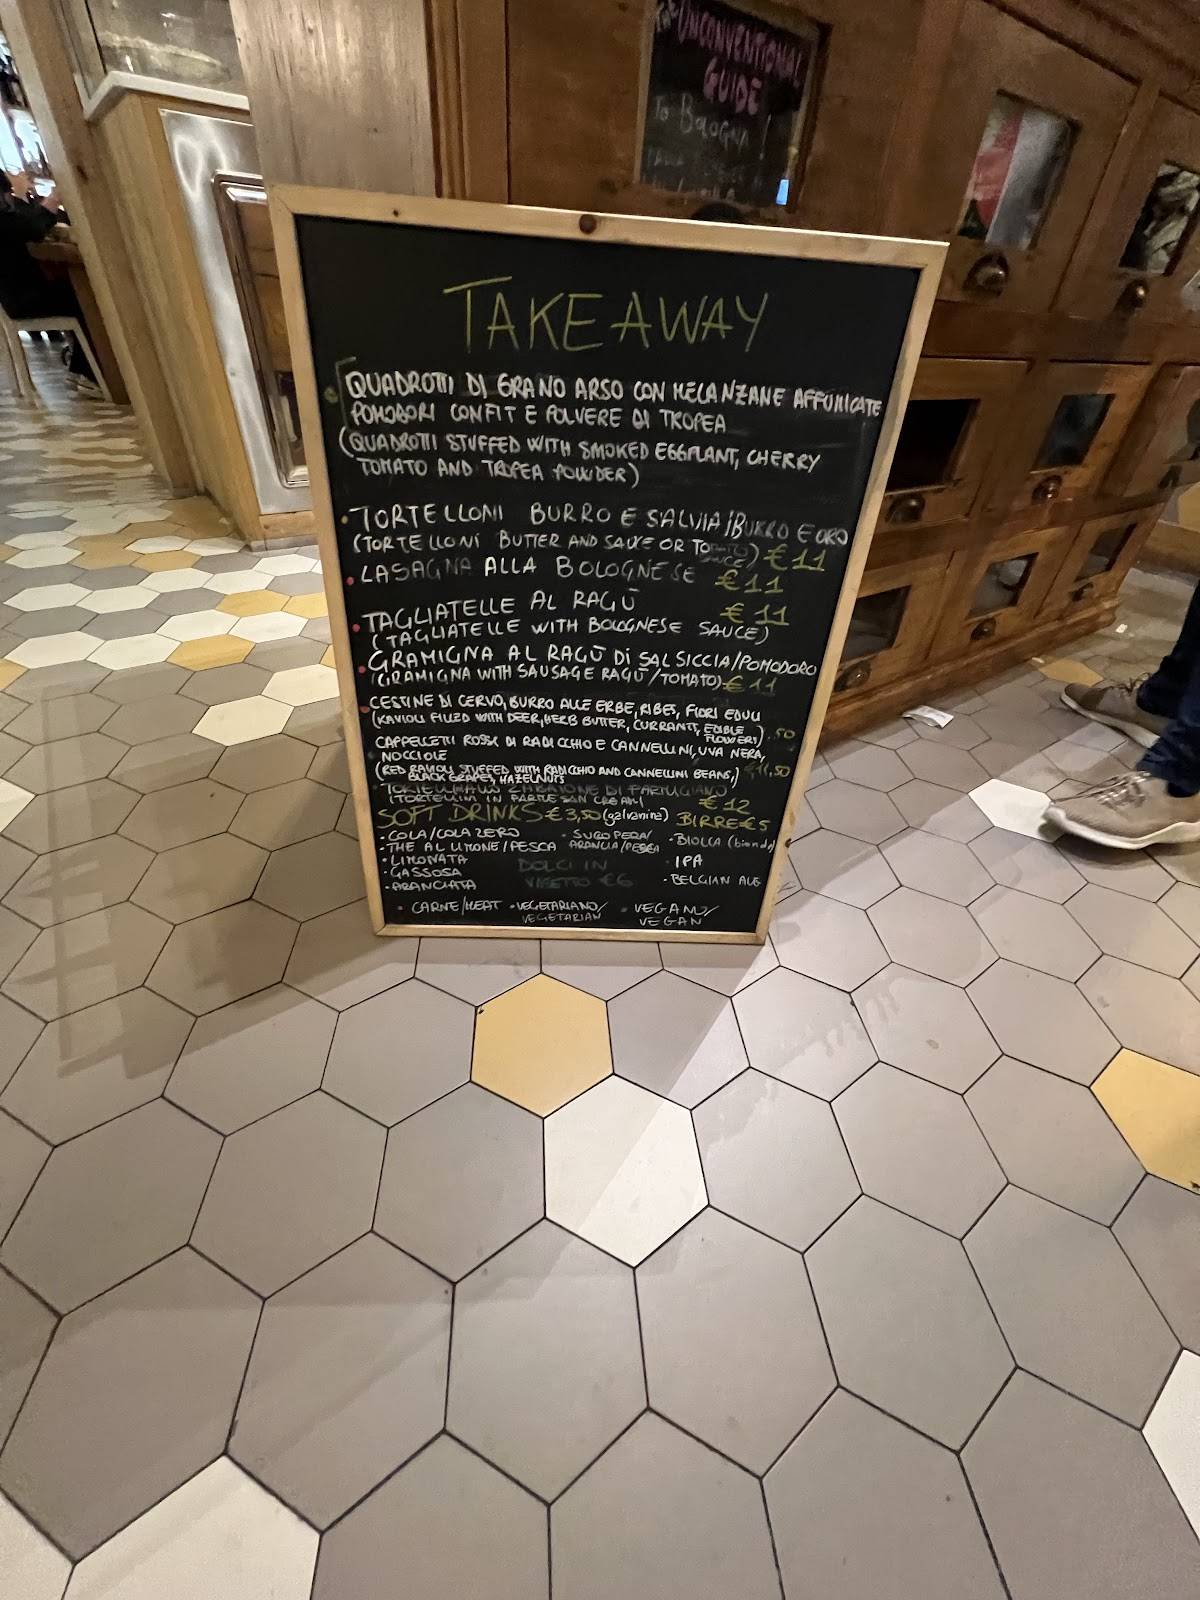 UNCONVENTIONAL
GUIDE
To BOLOGNA!
TAKE AWAY
QUADROTTI DI GRANO ARSO CON MELANZANE AFFUMICATE
POMODORI CONFIT E POLVERE DI TROPEA
(QUADROTTI STUFFED WITH SMOKED EGGPLANT, CHERRY
TOMATO AND TROPEA POWDER)
TORTELLONI BURRO E SALVIA/BURRO E ORO
(TORTELLONI BUTTER AND SAUCE OR TOMATO SAUCE) €11
LASAGNA ALLA BOLOGNESE €11
TAGLIATELLE AL RAGÙ €11
(TAGLIATELLE WITH BOLOGNESE SAUCE)
GRAMIGNA AL RAGÙ DI SALSICCIA/POMODORO
(GRAMIGNA WITH SAUSAGE RAGÙ/TOMATO) €11
CESTINE DI CERVO, BURRO ALLE ERBE, RIBES, FIORI EDULI
(RAVIOLI FILLED WITH DEER, HERB BUTTER, CURRANTS, EDIBLE FLOWERS) .50
CAPPELLETTI ROSSI DI RADICCHIO E CANNELLINI, UVA NERA,
NOCCIOLE
(RED RAVIOLI STUFFED WITH RADICCHIO AND CANNELLINI BEANS,) €11,50
BLACK GRAPES, HAZELNUTS
ZABAIONE DI PARMIGIANO
(TORTELLINI IN PARMESAN CREAM) €12
SOFT DRINKS €3,50 (galvanina) BIRRE €5
• COLA/COLA ZERO • SUCO PERA/ • BIOLCA (bionda)
• THE AL LIMONE/PESCA ARANCIA/PESCA
• LIMONATA DOLCI IN • IPA
• GASSOSA VASETTO €6 • BELGIAN ALE
• ARANCIATA
• CARNE/MEAT • VEGETARIANO/ • VEGANO/
VEGETARIAN VEGAN